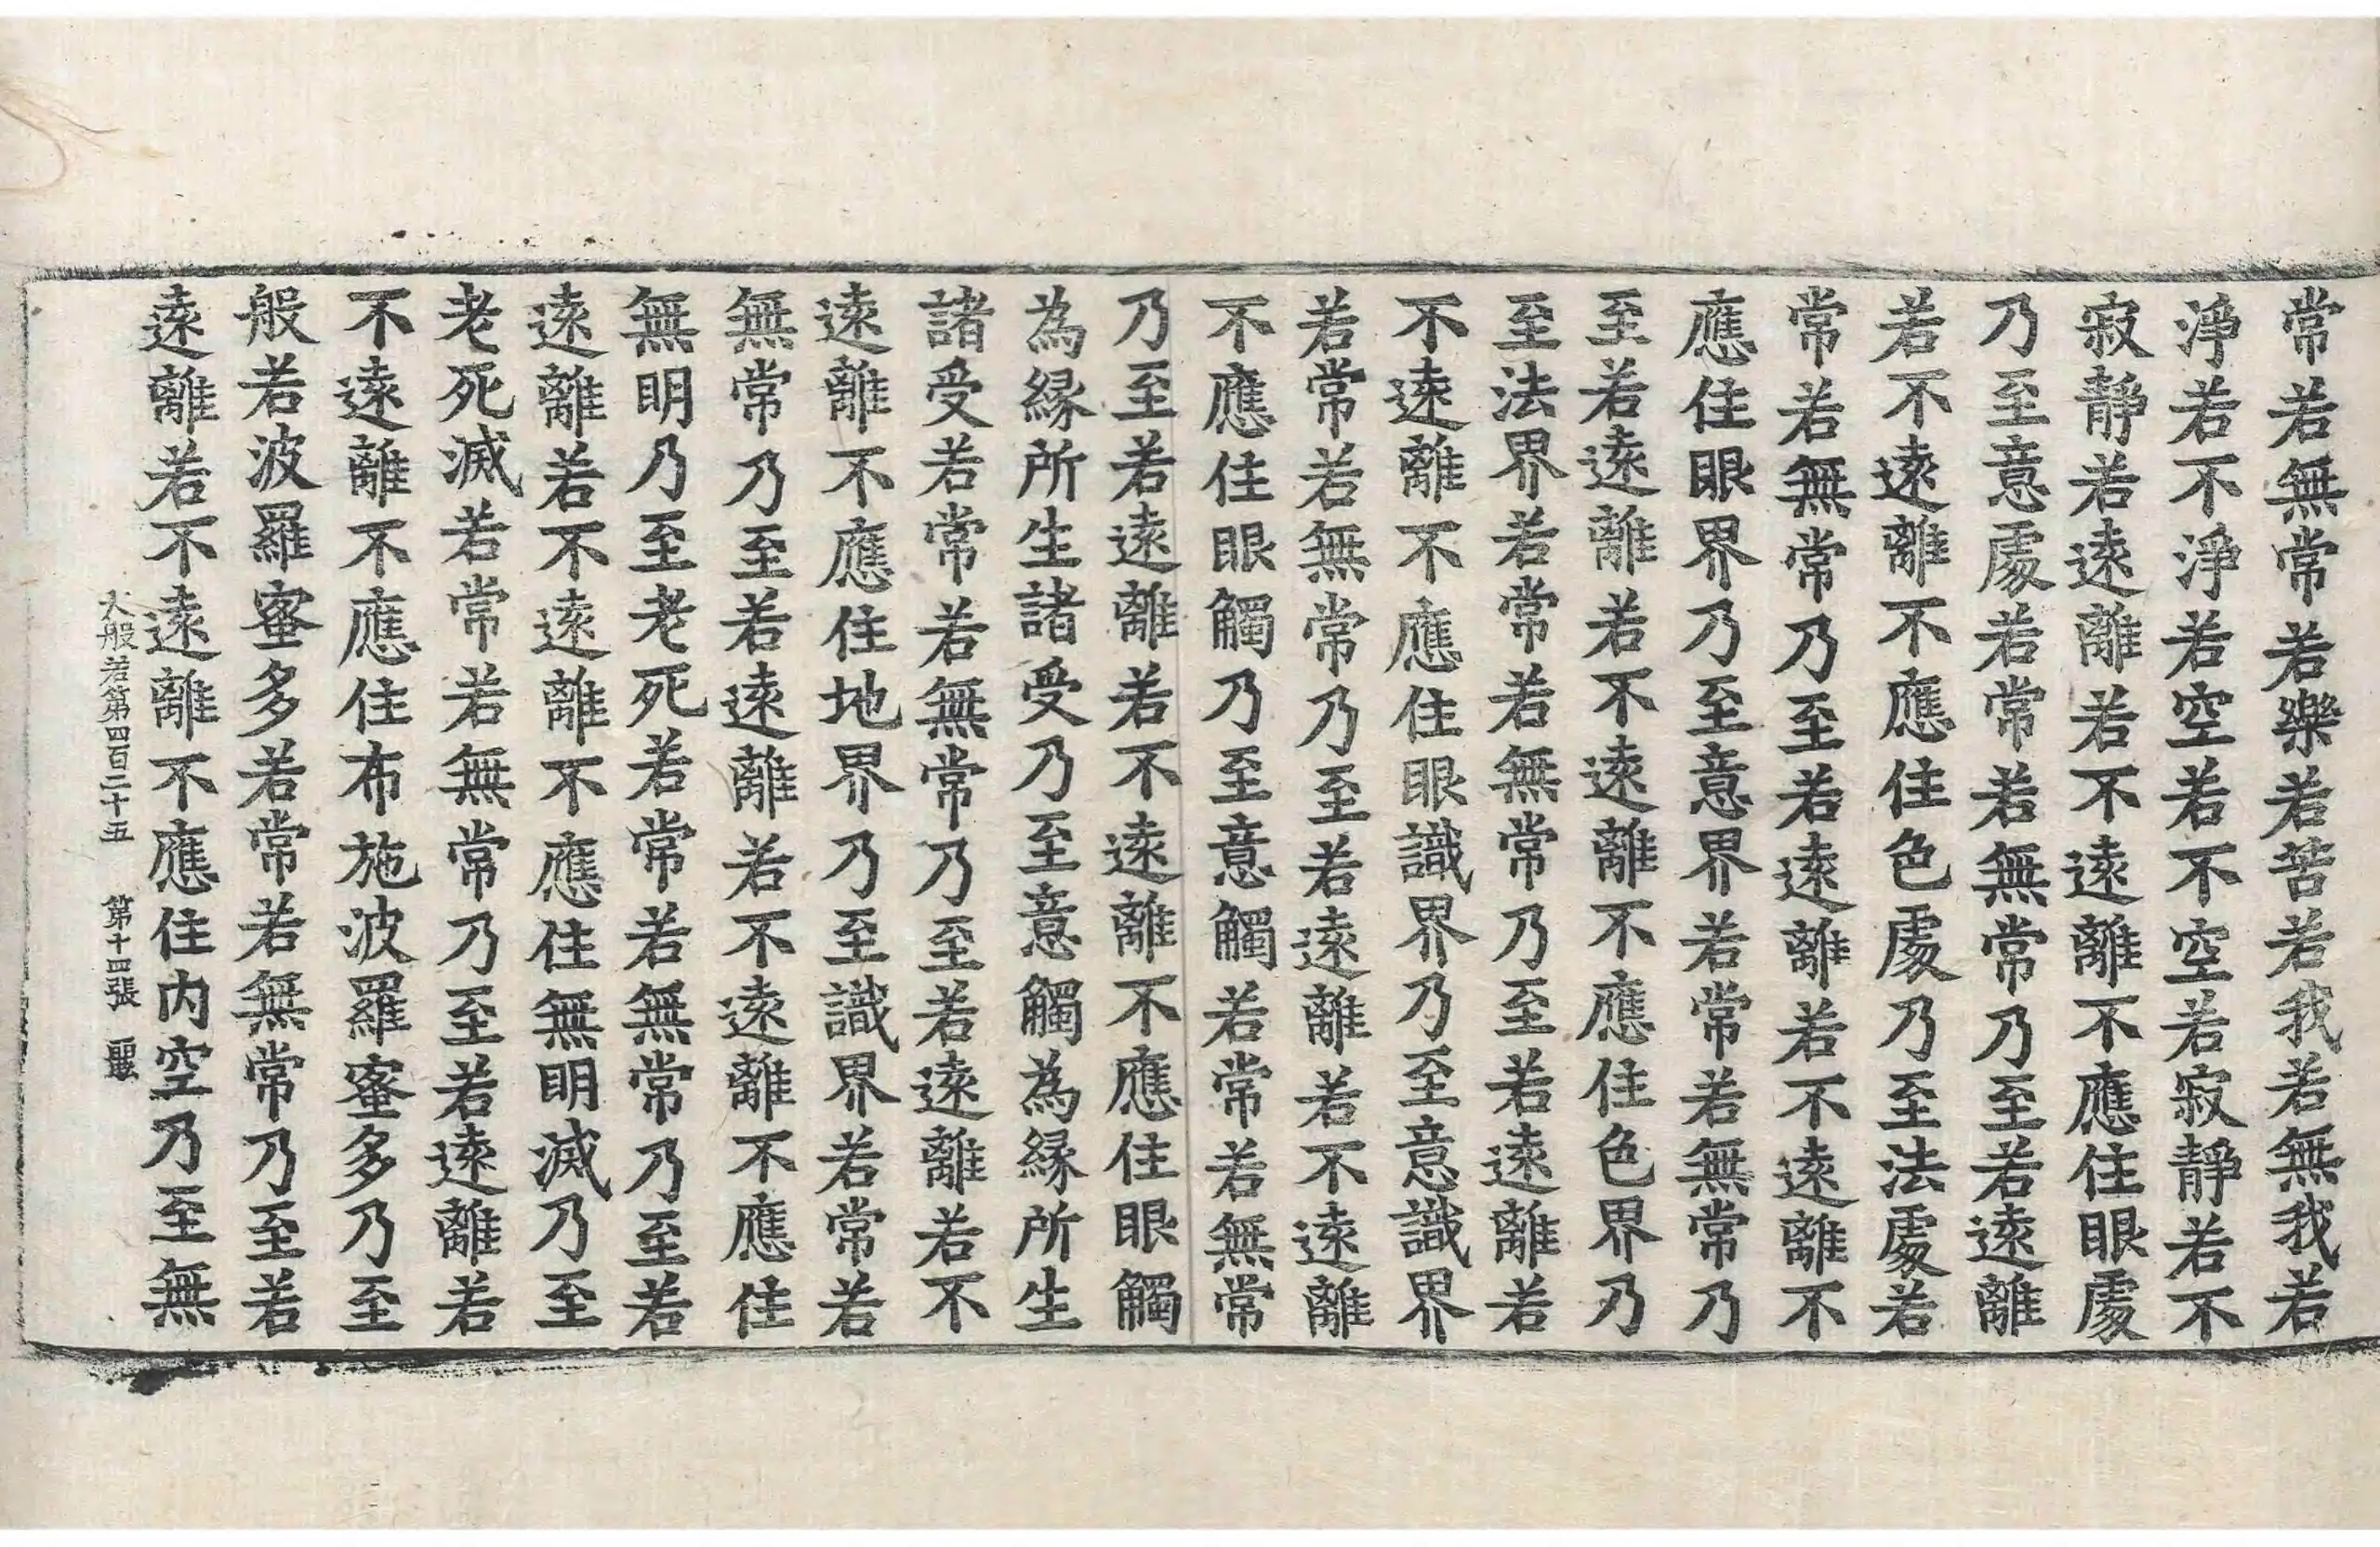 常若無常若樂若苦若我若無我若
淨若不淨若空若不空若寂靜若不
寂靜若遠離若不遠離不應住眼處
乃至意處若常若無常乃至若遠離
若不遠離不應住色處乃至法處若
常若無常乃至若遠離若不遠離不
應住眼界乃至意界若常若無常乃
至若遠離若不遠離不應住色界乃
至法界若常若無常乃至若遠離若
不遠離不應住眼識界乃至意識界
若常若無常乃至若遠離若不遠離
不應住眼觸乃至意觸若常若無常
乃至若遠離若不遠離不應住眼觸
為緣所生諸受乃至意觸為緣所生
諸受若常若無常乃至若遠離若不
遠離不應住地界乃至識界若常若
無常乃至若遠離若不遠離不應住
無明乃至老死若常若無常乃至若
遠離若不遠離不應住無明滅乃至
老死滅若常若無常乃至若遠離若
不遠離不應住布施波羅蜜多乃至
般若波羅蜜多若常若無常乃至若
遠離若不遠離不應住內空乃至無
大般若第四百二十五 第十四張